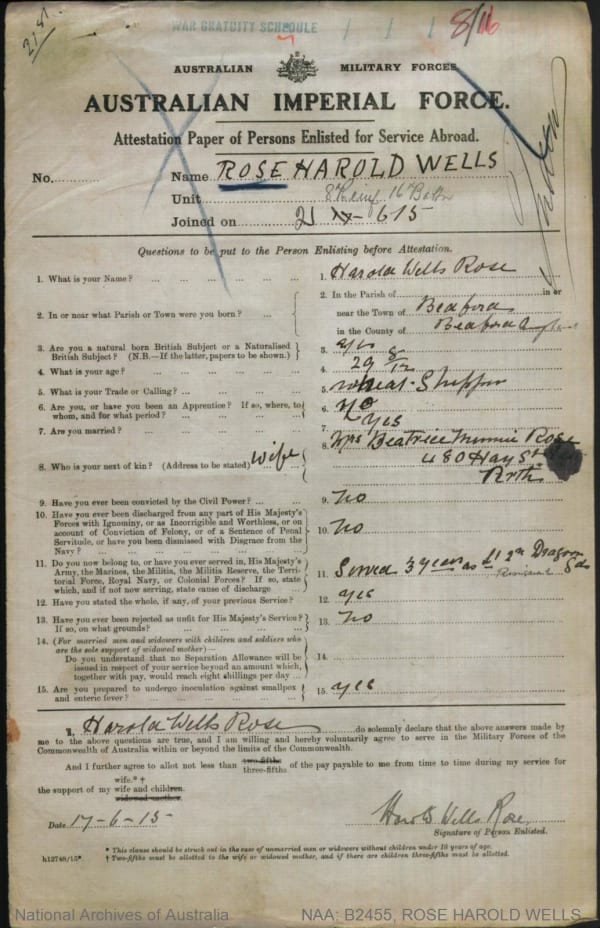 WAR GRATUITY SCHEDULE
8/16
AUSTRALIAN MILITARY FORCES.
AUSTRALIAN IMPERIAL FORCE.
Attestation Paper of Persons Enlisted for Service Abroad.
No. Name ROSE HAROLD WELLS
Unit 8th Reinf 16th Battn
Joined on 21 6 15
Questions to be put to the Person Enlisting before Attestation.
1. What is your Name? ... 1. Harold Wells Rose
2. In or near what Parish or Town were you born? ... 2. In the Parish of in or
near the Town of Bedford
in the County of Bedford England
3. Are you a natural born British Subject or a Naturalised
British Subject? (N.B.—If the latter, papers to be shown.) 3. yes
4. What is your age? ... 4. 29 8/12
5. What is your Trade or Calling? ... 5. Wheat-Shipper
6. Are you, or have you been an Apprentice? If so, where, to
whom, and for what period? ... 6. No
7. Are you married? ... 7. Yes
8. Who is your next of kin? (Address to be stated) wife 8. Mrs Beatrice Minnie Rose
480 Hay St
Perth
9. Have you ever been convicted by the Civil Power? ... 9. No
10. Have you ever been discharged from any part of His Majesty's
Forces with Ignominy, or as Incorrigible and Worthless, or on
account of Conviction of Felony, or of a Sentence of Penal
Servitude, or have you been dismissed with Disgrace from the
Navy? ... 10. No
11. Do you now belong to, or have you ever served in, His Majesty's
Army, the Marines, the Militia, the Militia Reserve, the Terri-
torial Force, Royal Navy, or Colonial Forces? If so, state
which, and if not now serving, state cause of discharge 11. Served 3 years as Lt 2n Dragoon Gds
Resigned
12. Have you stated the whole, if any, of your previous Service? 12. yes
13. Have you ever been rejected as unfit for His Majesty's Service?
If so, on what grounds? ... 13. No
14. (For married men and widowers with children and soldiers who
are the sole support of widowed mother)—
Do you understand that no Separation Allowance will be
issued in respect of your service beyond an amount which,
together with pay, would reach eight shillings per day ... 14.
15. Are you prepared to undergo inoculation against smallpox
and enteric fever? ... 15. yes
I, Harold Wells Rose do solemnly declare that the above answers made by
me to the above questions are true, and I am willing and hereby voluntarily agree to serve in the Military Forces of the
Commonwealth of Australia within or beyond the limits of the Commonwealth.
And I further agree to allot not less than two-fifths three-fifths of the pay payable to me from time to time during my service for
wife.* †
the support of my wife and children.
widowed mother.
Date 17-6-15 Harold Wells Rose
Signature of Person Enlisted.
* This clause should be struck out in the case of unmarried men or widowers without children under 18 years of age.
h12748/15*. † Two-fifths must be allotted to the wife or widowed mother, and if there are children three-fifths must be allotted.
National Archives of Australia NAA: B2455, ROSE HAROLD WELLS